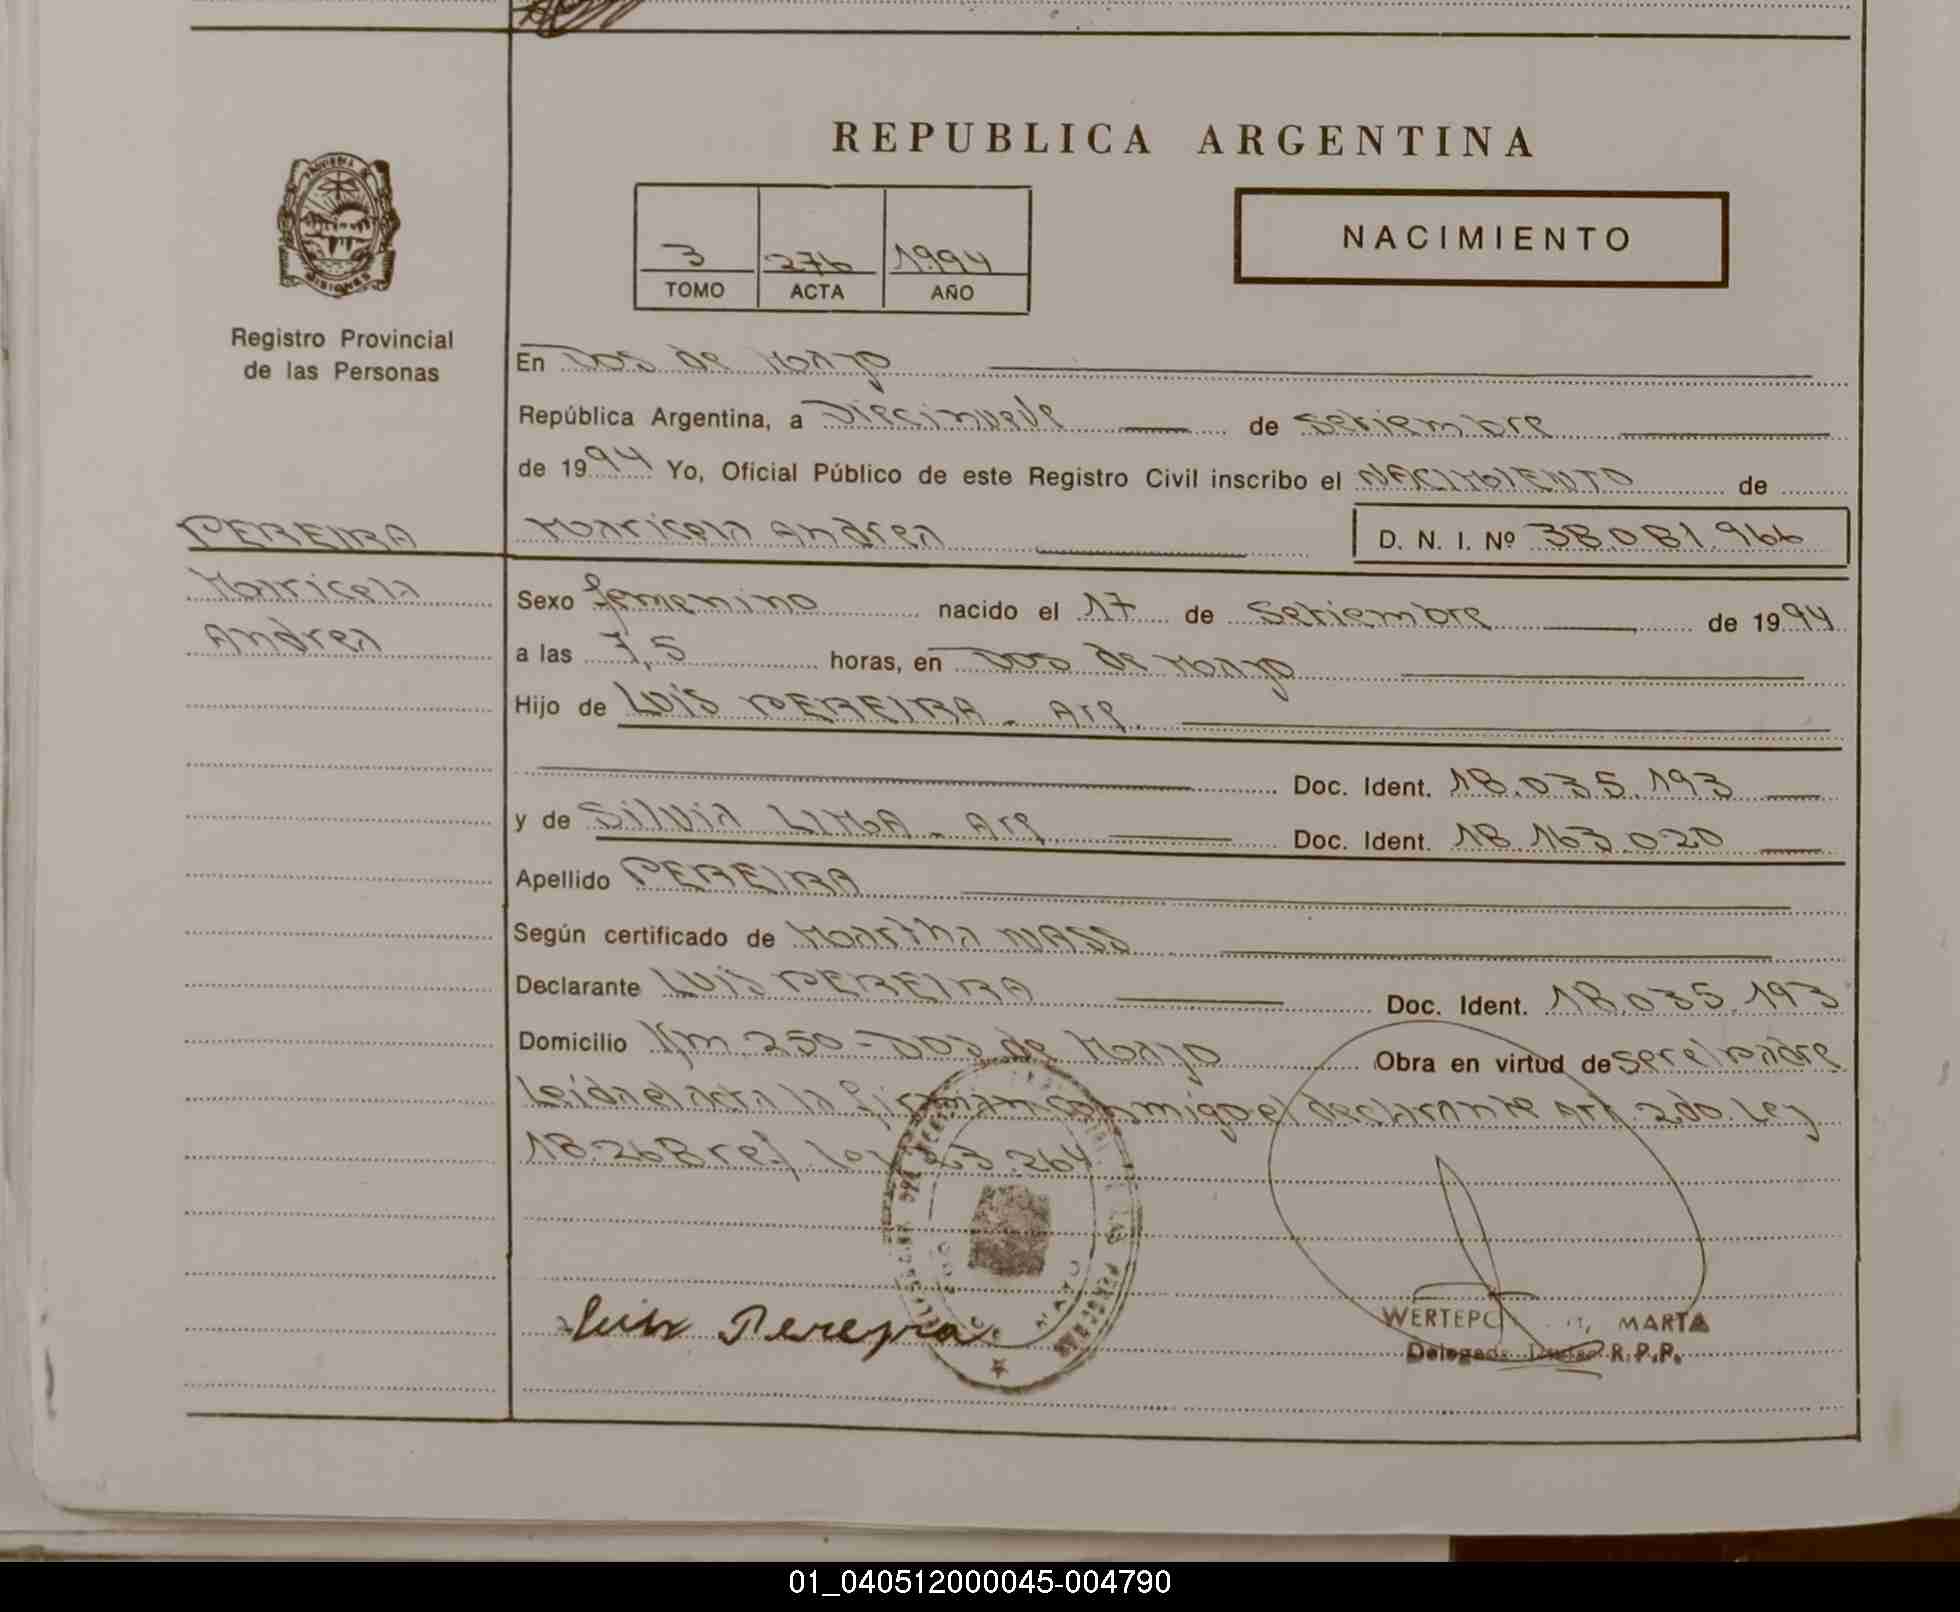 REPUBLICA ARGENTINA
NACIMIENTO
3 276 1994
TOMO ACTA AÑO
MISIONES
Registro Provincial
de las Personas
En Dos de Mayo
República Argentina, a Diecinueve de Setiembre
de 1994 Yo, Oficial Público de este Registro Civil inscribo el NACIMIENTO de
PEREIRA
Maricela Andrea D. N. I. Nº 38.081.966
Maricela
Andrea
Sexo femenino nacido el 17 de Setiembre de 1994
a las 7,5 horas, en Dos de Mayo
Hijo de Luis PEREIRA - Arg.
Doc. Ident. 18.035.193
y de Silvia LIMA - Arg Doc. Ident. 18.163.020
Apellido PEREIRA
Según certificado de Martha NASS
Declarante Luis PEREIRA Doc. Ident. 18.035.193
Domicilio Km 250 - Dos de Mayo Obra en virtud de ser el padre
Leida el acta la firman conmigo el declarante Art. 2do. Ley
18.268 ref. ley 23.264
Luis Pereyra
WERTEPC MARTA
R.P.P.
01_040512000045-004790